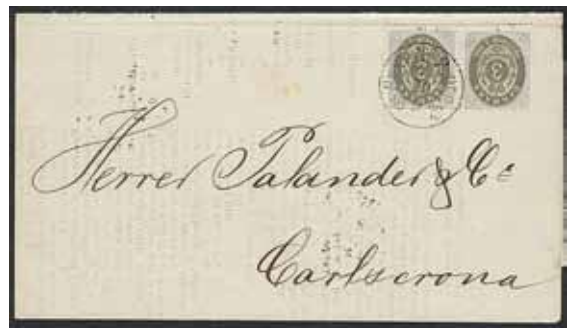 3 3
Herrer Palander & Cᵒ
Carlscrona